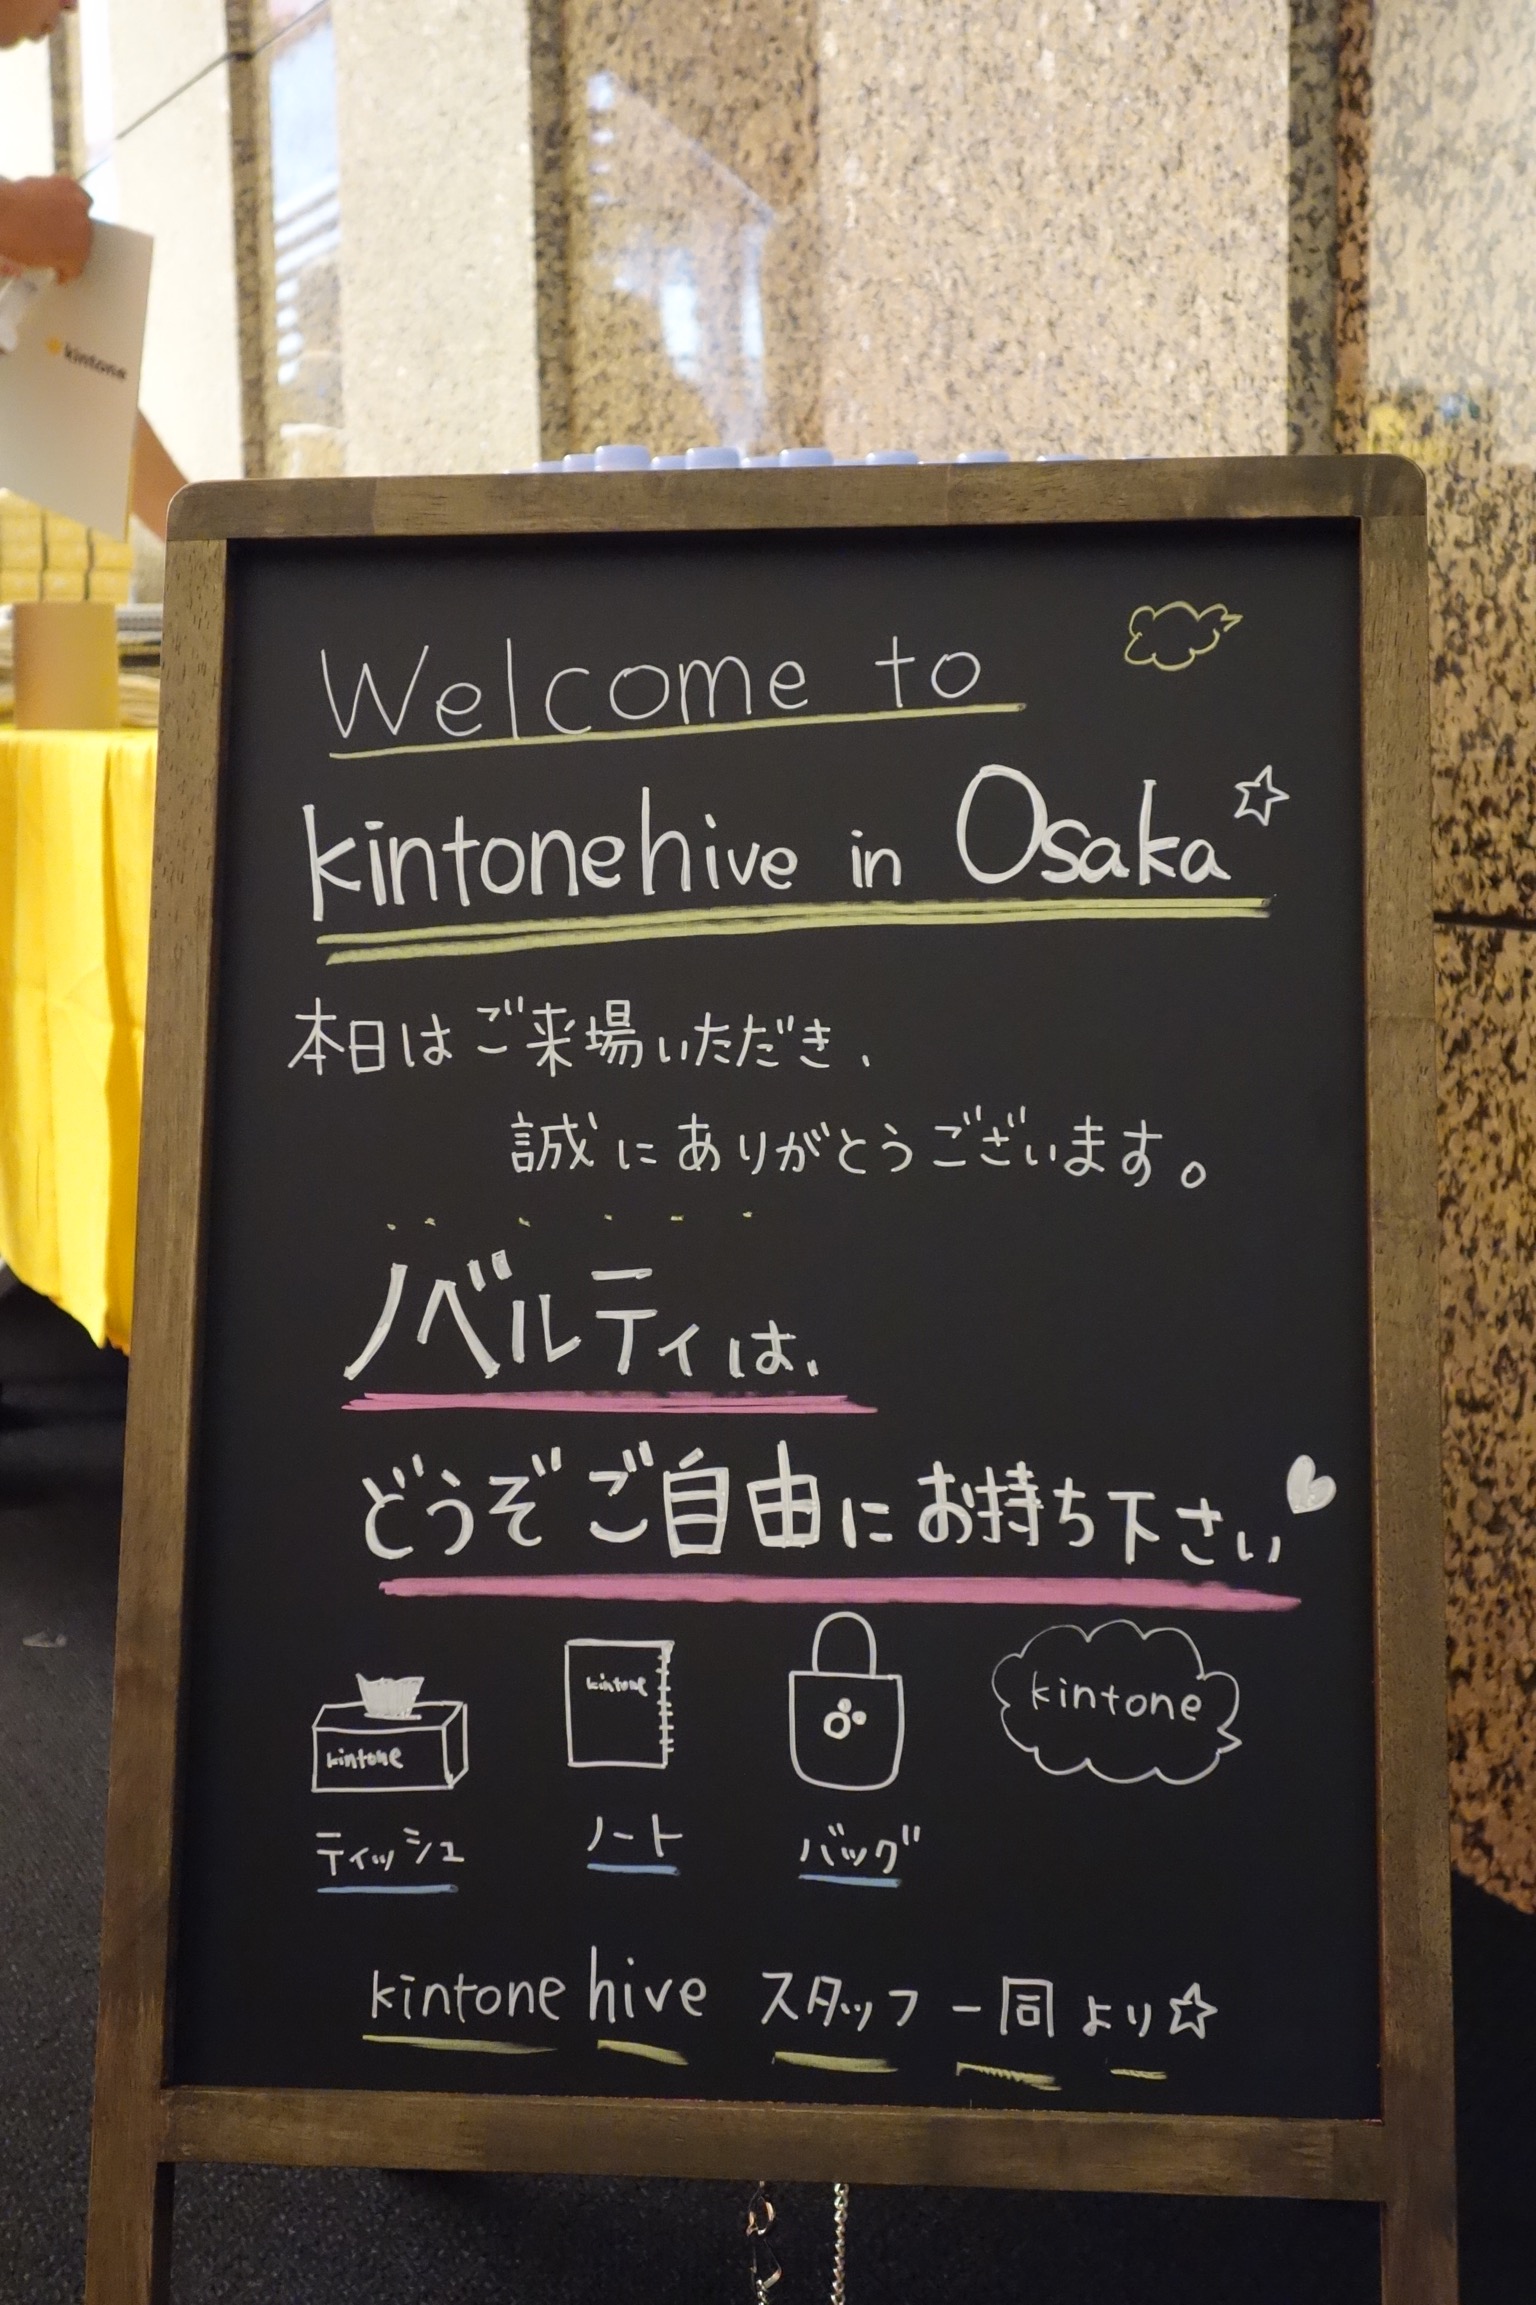 kintone
Welcome to
kintonehive in Osaka☆
本日はご来場いただき、
誠にありがとうございます。
ノベルティは、
どうぞご自由にお持ち下さい♥
kintone
kintone
kintone
ティッシュ
ノート
バッグ
kintone hive スタッフ一同より☆